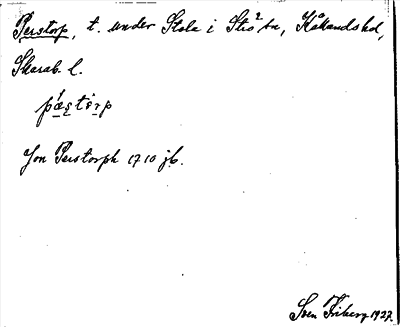 Perstorp, t. under Stola i Strö2 sn, Kållands hd,
Skarab. l.
Jon Perstorph 1710 jb.
Sven Friberg 1927.